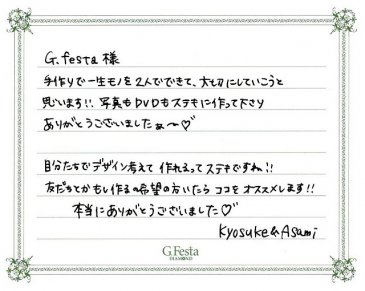 G.festa 様
手作りで一生モノを2人でできて、大切にしていこうと
思います!! 写真もDVDもステキに作って下さり
ありがとうございましたぁ〜♡
自分たちでデザイン考えて 作れるってステキですね!!
友だちとかもし作る希望の方いたら ココをオススメします!!
本当にありがとうございました♡
Kyosuke&Asami
G.Festa
DIAMOND